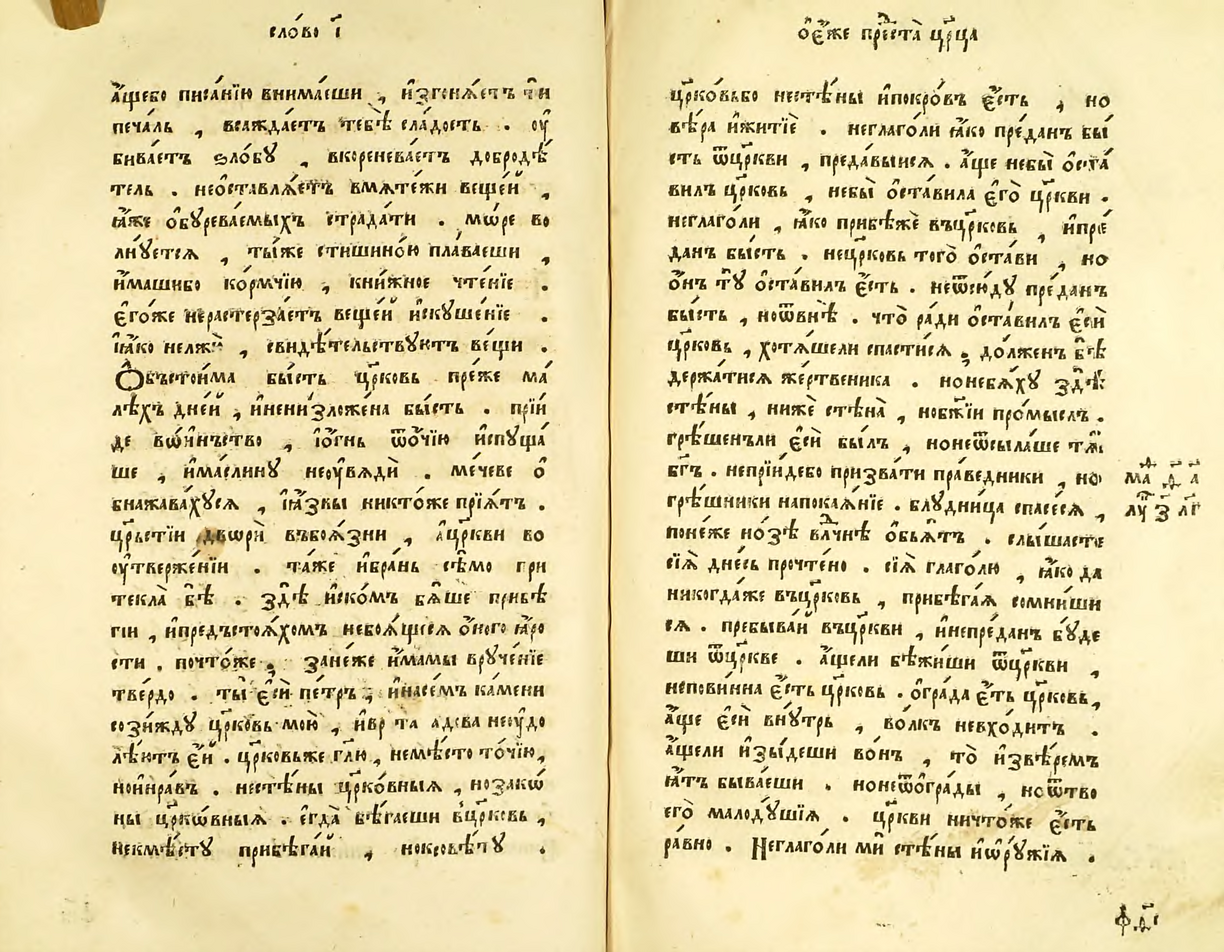 сло́во і҃
а҆́щебо писа́нїю внима́еши , и҆згоня́етъ ти
печа́ль , всажда́етъ тебѣ̀ сла́дость . оу҆
бива́етъ ѕло́бꙋ , вкоренева́етъ добродѣ́
тель . неѡ҆ставлѧ́етъ вмѧте́жи веще́й ,
ꙗ҆́же ѻ҆бꙋрева́емыхъ страда́ти . мѡ́ре во
лнꙋ́етсѧ , ты́же стишино́ю пла́ваеши ,
и҆́машибо ко́рмчїю , кни́жное чте́нїе .
є҆го́же нерастерза́етъ веще́й и҆скꙋше́нїе .
ꙗ҆́ко нелжꙋ̀ , свидѣ́тельствꙋютъ ве́щи .
Ѻ҆бъстои́ма бы́сть цр҃ковь пре́же ма́
лѣхъ дне́й , и҆ненизложе́на бы́сть . прїи́
де вѡ́инъство , і҆ѻ҆́гнь ѿо́чїю и҆спꙋща́
ше , и҆ма́слинꙋ неоу҆вѧдѝ . ме́чеве ѻ҆
бнажава́хꙋсѧ , і҆ꙗ҆́звы никто́же прїѧ́тъ .
цр҃ьстїи двѡрѝ въбоѧ́зни , а҆цр҃кви во
оу҆твержє́нїи . та́же и҆бра́нь сѣ́мо при
текла̀ бѣ̀ . здѣ̀ и҆ско́мъ бѧ́ше прибѣ́
гїи , и҆предъстоѧ́хомъ небоѧ́щесѧ ѻ҆́ного ꙗ҆́ро
сти . почто́же , зане́же и҆́мамы врꙋче́нїе
тве́рдо . ты̀ є҆сѝ пе́тръ , и҆насе́мъ ка́мени
сози́ждꙋ цр҃ковь мою̀ , и҆вра та а҆дова неоу҆до
лѣ́ютъ є҆́й . цр҃ковьже гл҃ю , немѣ́сто то́чїю ,
нои҆нра́въ . нестѣ́ны цр҃ко́вныѧ , нозако́
ны цр҃кѡ́вныѧ . є҆гда̀ бѣ́гаеши вцр҃ковь ,
некмѣ́стꙋ прибѣга́й , ноксовѣ́тꙋ .
ѻ҆є҆́же прест҃а̀ цр҃ца
цр҃ко́вьбо нестѣ́ны и҆покро́въ є҆́сть , но
вѣ́ра и҆житїѐ . неглаго́ли ꙗ҆́ко пре́данъ бы́
сть ѿцр҃кви , преда́выисѧ . а҆́ще небы̀ ѡ҆ста́
вилъ цр҃ковь , небы̀ ѡ҆ста́вила є҆го̀ цр҃кви .
неглаго́ли , ꙗ҆́ко прибѣжѐ въцр҃ковь , и҆пре́
данъ бы́сть . нецр҃ковь того̀ ѡ҆ста́ви , но
ѻ҆́нъ тꙋ̀ ѡ҆ста́вилъ є҆́сть . неѿсю́дꙋ пре́данъ
бы́сть , ноѿвнѣ̀ . что̀ ра́ди ѡ҆ста́вилъ є҆сѝ
цр҃ковь , хотѧ́шели спасти́сѧ , до́лженъ бѣ̀
держа́тисѧ же́ртвеника . нонебѧ́хꙋ здѣ̀
стѣ́ны , ниже́ стѣна̀ , нобж҃їи про́мыслъ .
грѣ́шенъли є҆сѝ бы́лъ , нонеѿсыла́ше тѧ̀
бг҃ъ . непрїи́дебо призва́ти пра́ведники , но
грѣ́шники напокаѧ́нїе . блꙋдни́ца спасе́сѧ ,
поне́же но́зѣ влⷣчнѣ ѻ҆б̾ѧ́тъ . слы́шасте
сїѧ̀ дне́сь прочте́но . сїѧ̀ глаго́лю , ꙗ҆́ко да
никогда́же въцр҃ковь , прибѣга́ѧ сомни́ши
сѧ . пребыва́й въцр҃кви , и҆непре́данъ бꙋ́де
ши ѿцр҃кве . а҆́щели бѣжи́ши ѿцр҃кви ,
непови́нна є҆́сть цр҃ковь . ѻ҆гра́да є҆́сть цр҃ковь ,
а҆́ще є҆сѝ внꙋ́трь , во́лкъ невхо́дитъ .
а҆́щели и҆зы́деши во́нъ , то̀ и҆звѣ́ремъ
ꙗ҆́тъ быва́еши . нонеѿѻ҆гра́ды , ноѿтво
его̀ малодꙋ́шїѧ . цр҃кви ничто́же є҆́сть
ра́вно . Неглаго́ли мѝ стѣ́ны и҆ѻ҆рꙋ́жїѧ .